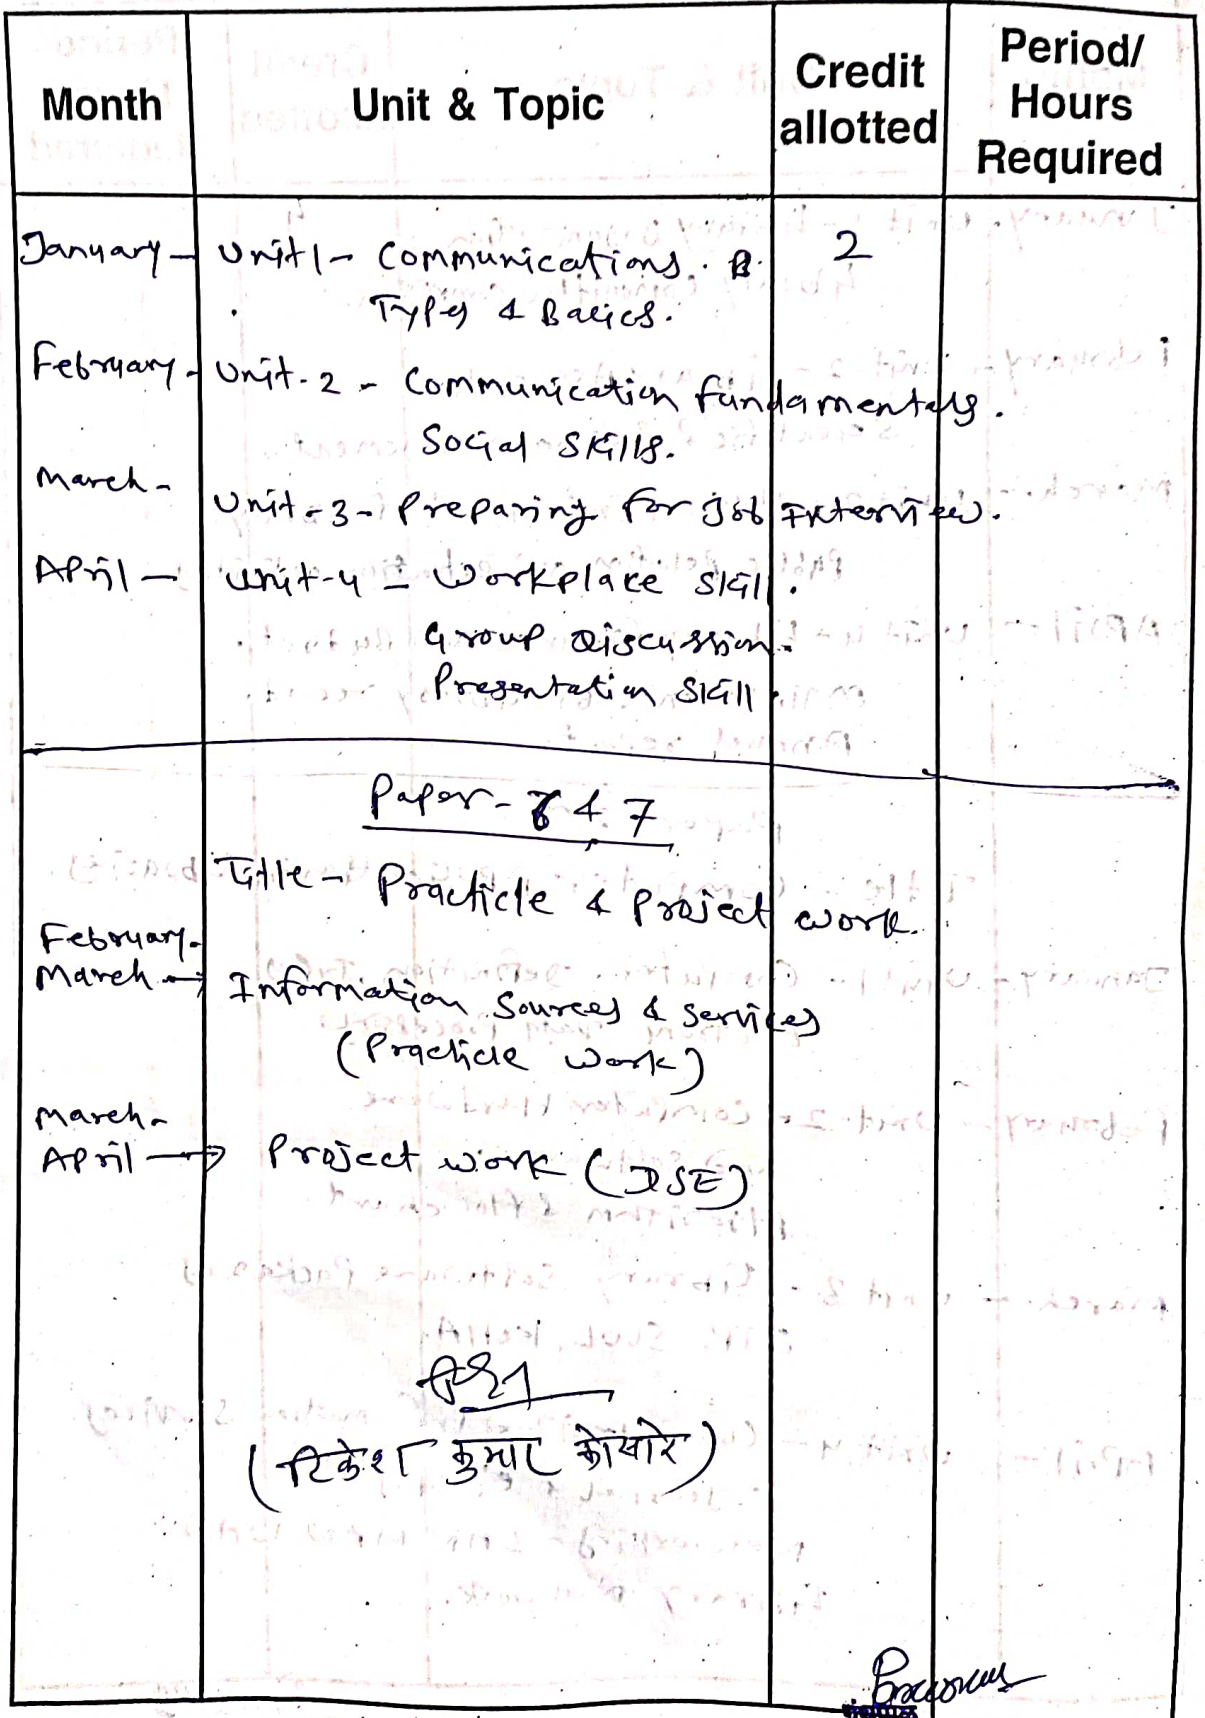 Month Unit & Topic Credit allotted Period/ Hours Required
January - Unit 1 - Communications. 2
Types & Basics.
February - Unit-2 - Communication fundamentals.
Social Skills.
March - Unit-3 - Preparing for Job Interview.
April - Unit-4 - Workplace Skill.
Group Discussion.
Presentation Skill.
Paper-6 & 7
Title - Practicle & Project work.
February-
March → Information Sources & Services
(Practicle work)
March-
April → Project work (DSE)
(रिकेश कुमार कोसारे)